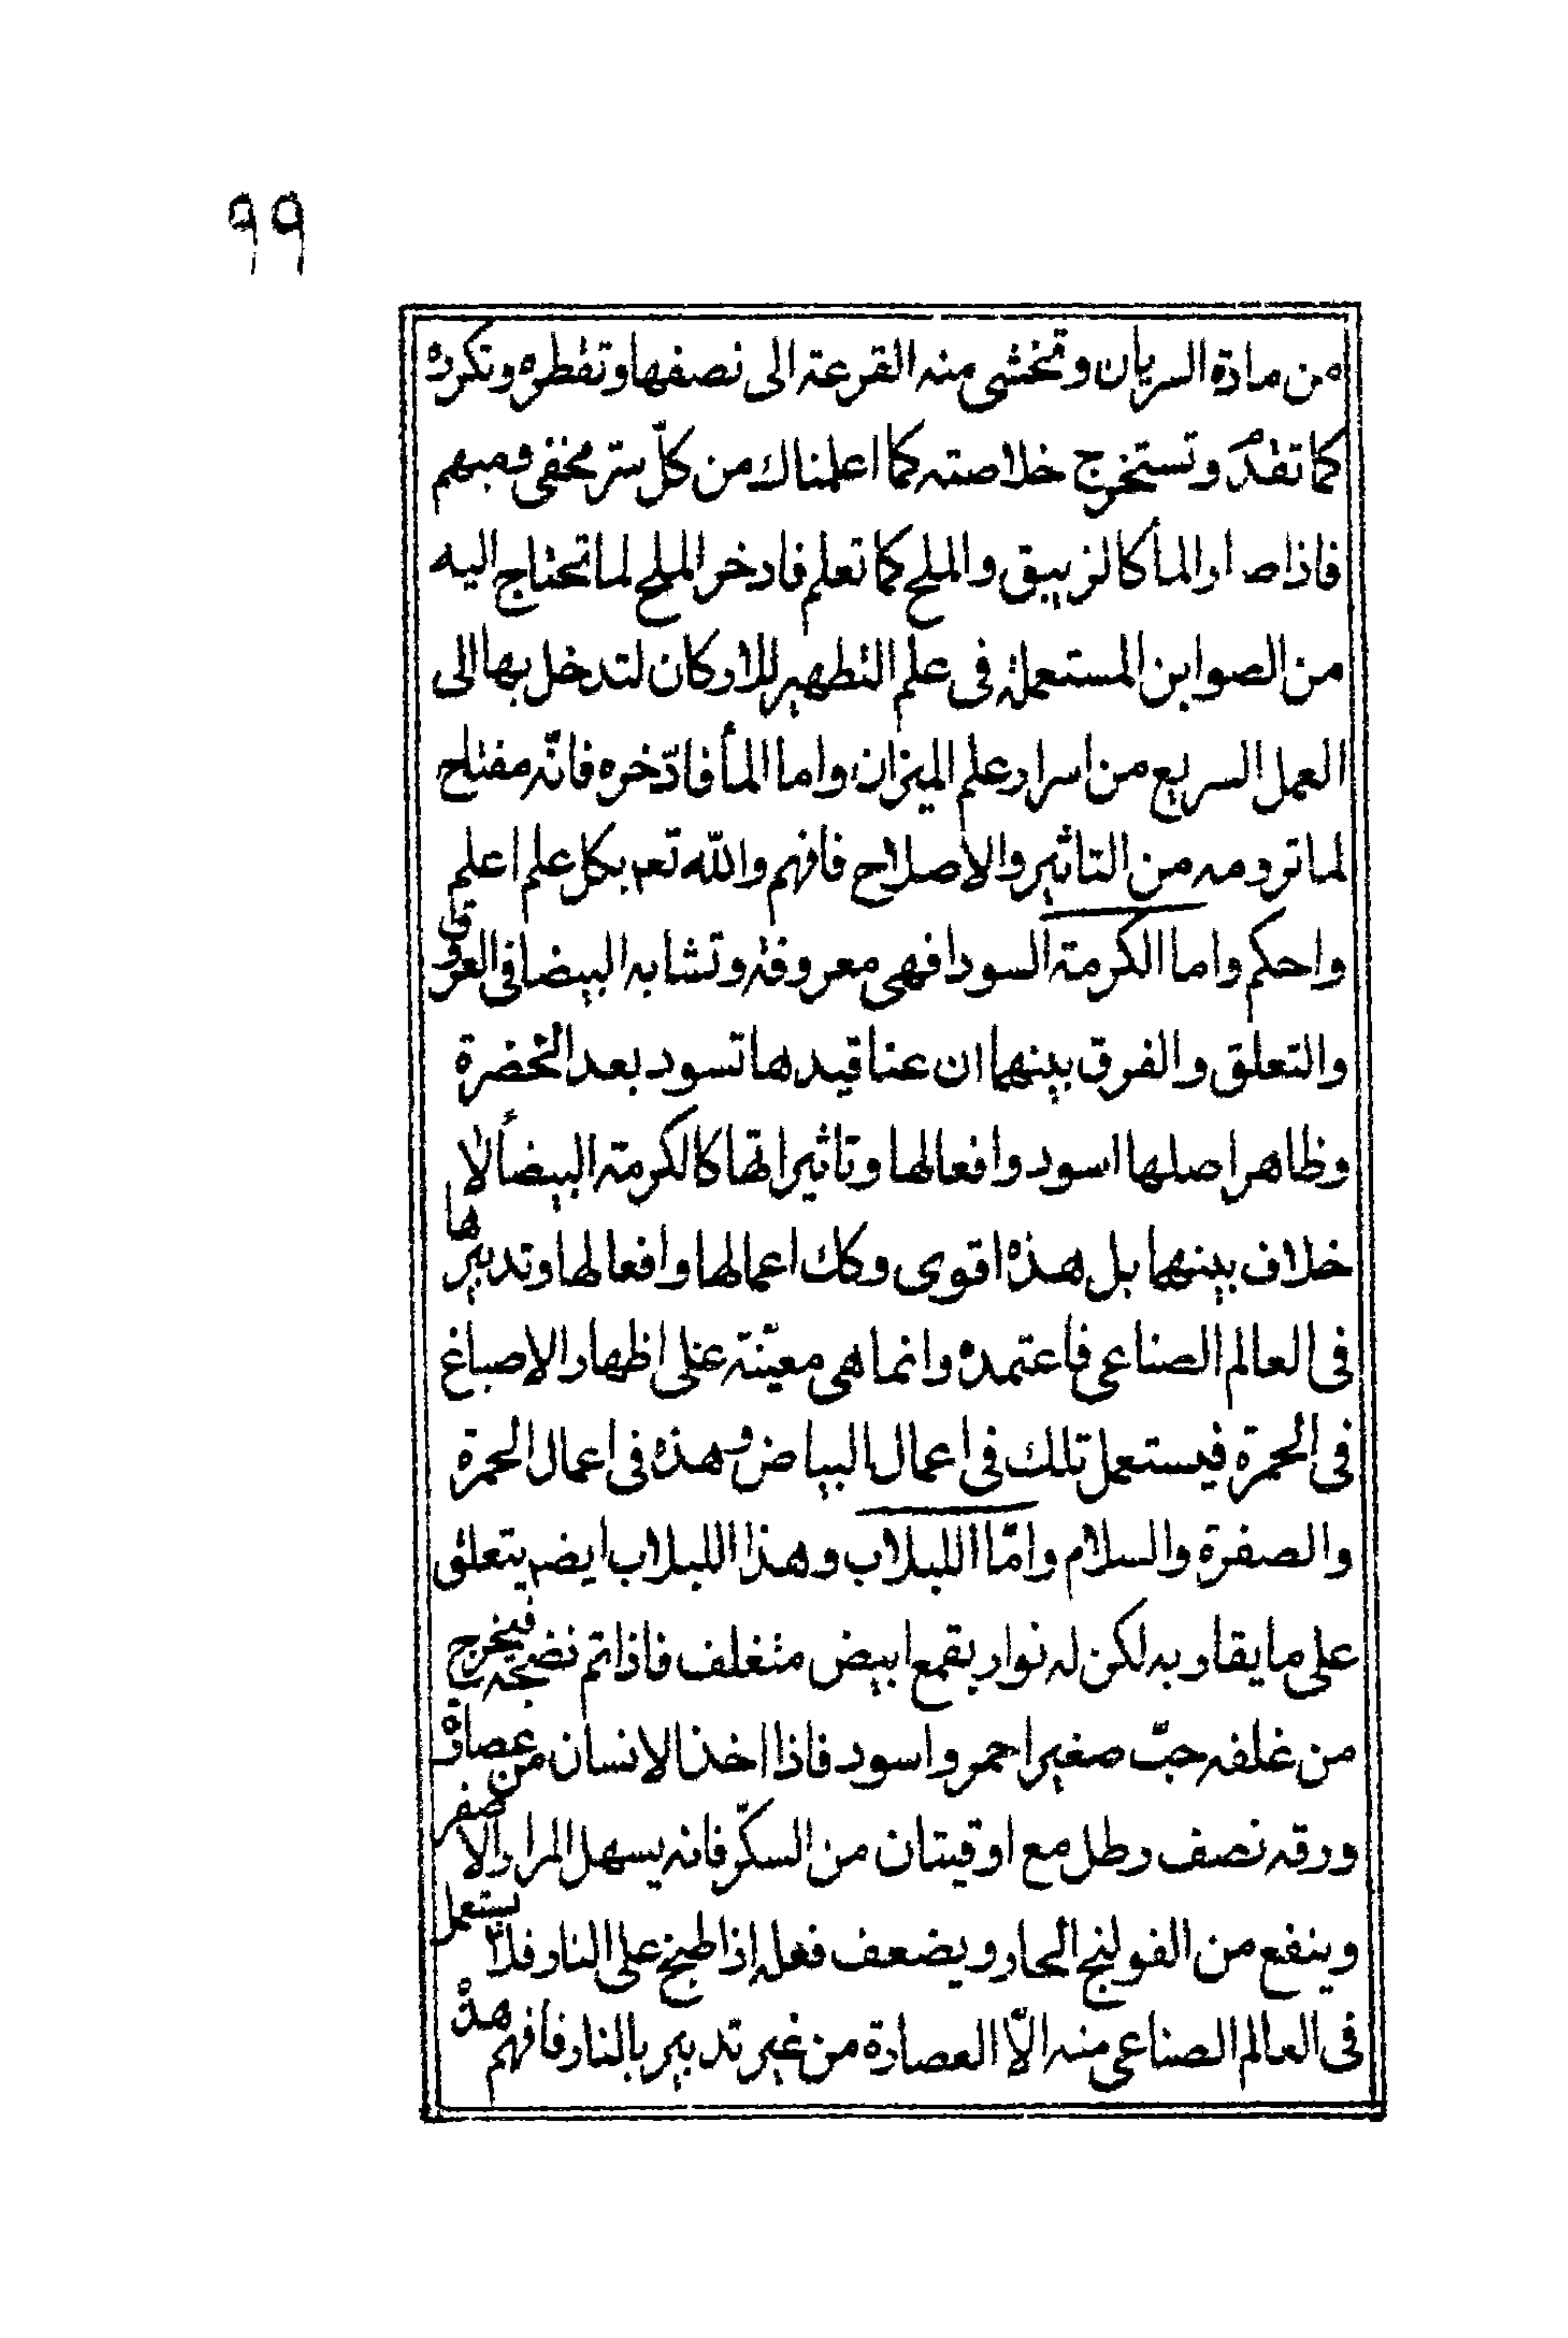 ٩٩
من مادة السريان وتخشى منه القرعة الى نصفها وتقطره وتكرره
كما تقدم وتستخرج خلاصته كما اعلمناك من كلّ ستر مخفى ومبهم
فاذا صار المأ كالزيبق والملح كما تعلم فادخر الملح لما تحتاج اليه
من الصوابن المستعملة فى علم التطهير للاركان لتدخل بها الى
العمل السريع من اسرار علم الميزان واما المأ فادّخره فانّه مفتاح
لما ترومه من التاثير والاصلاح فافهم والله تعہ بكل علم اعلم
واحكم واما الكرمة السودا فهى معروفة وتشابه البيضا فى العروق
والتعلق والفرق بينهما ان عناقيدها تسود بعد الخضرة
وظاهر اصلها اسود وافعالها وتاثيراتها كالكرمة البيضأ لا
خلاف بينهما بل هذه اقوى وكك اعمالها وافعالها وتدبيرها
فى العالم الصناعى فاعتمده وانما هى معيّنة على اظهار الاصباغ
فى الحمرة فيستعمل تلك فى اعمال البياض وهذه فى اعمال الحمرة
والصفرة والسلام وامّا اللبلاب وهذا اللبلاب ايضہ يتعلق
على ما يقاربه لكن له نوار بقمع ابيض متغلف فاذا تم نضجه فيخرج
من غلفه حبّ صغير احمر واسود فاذا اخذ الانسان من عصارة
ورقه نصف رطل مع اوقيتان من السكّر فانه يسهل المرار الاصفر
وينفع من القولنج الحار ويضعف فعله إذا طبخ على النار فلا يستعمل
فى العالم الصناعى منه الّا العصارة من غير تدبير بالنار فافهم هذ